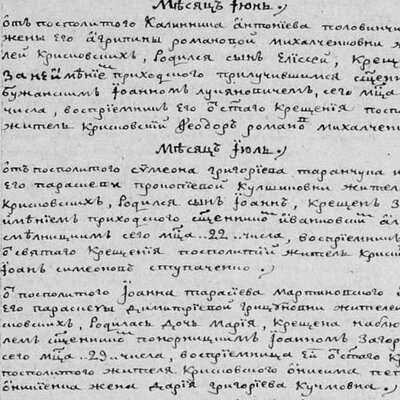 Мѣсяцъ Іюнь
Отъ посполитого Каллиника Антоніева половинчи
жены его Агрипины Романовой Михалченковни
лей Крисповскихъ, Родился сынъ Елісѣй, Крещ
За неимѣніе приходского прилучившимся сщенн
Іоанномъ сего мца
числа, воспріемникъ его Ѿ стаго Крещенія посп
житель Крисповскій Ѳеодоръ Романовъ Михалчен
Мѣсяцъ Іюль
Отъ посполитого Сѵмеона Григоріева таранчука
Его Параскеви Прокопіевой жителе
Крисповскихъ, Родился сынъ Іоаннъ, Крещенъ За
имѣніемъ приходского сщенника
сего мца 22 числа, воспріемникъ
Ѿ святаго Крещенія посполитій житель Крисп
Іоанъ Симеоновъ ступаченко
Ѿ посполитого Іоанна Тарасіева Мартиновского
Его Параскевы Димитріевой жителей
сповскихъ, Родилась дочь Марія, Крещена наблю
лемъ сщенникомъ Іоанномъ Загор
сего мца 29 числа, воспріемница ей Ѿ стаго К
посполитого жителя Крисповского Онисима
жена Дарія Григоріева Кучмовна